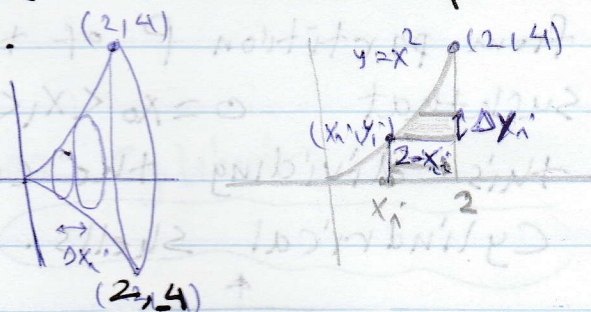 (2,4)
Δxᵢ
(2,-4)
y=x²
(2,4)
(xᵢ,yᵢ)
Δyᵢ
2-xᵢ
xᵢ
2